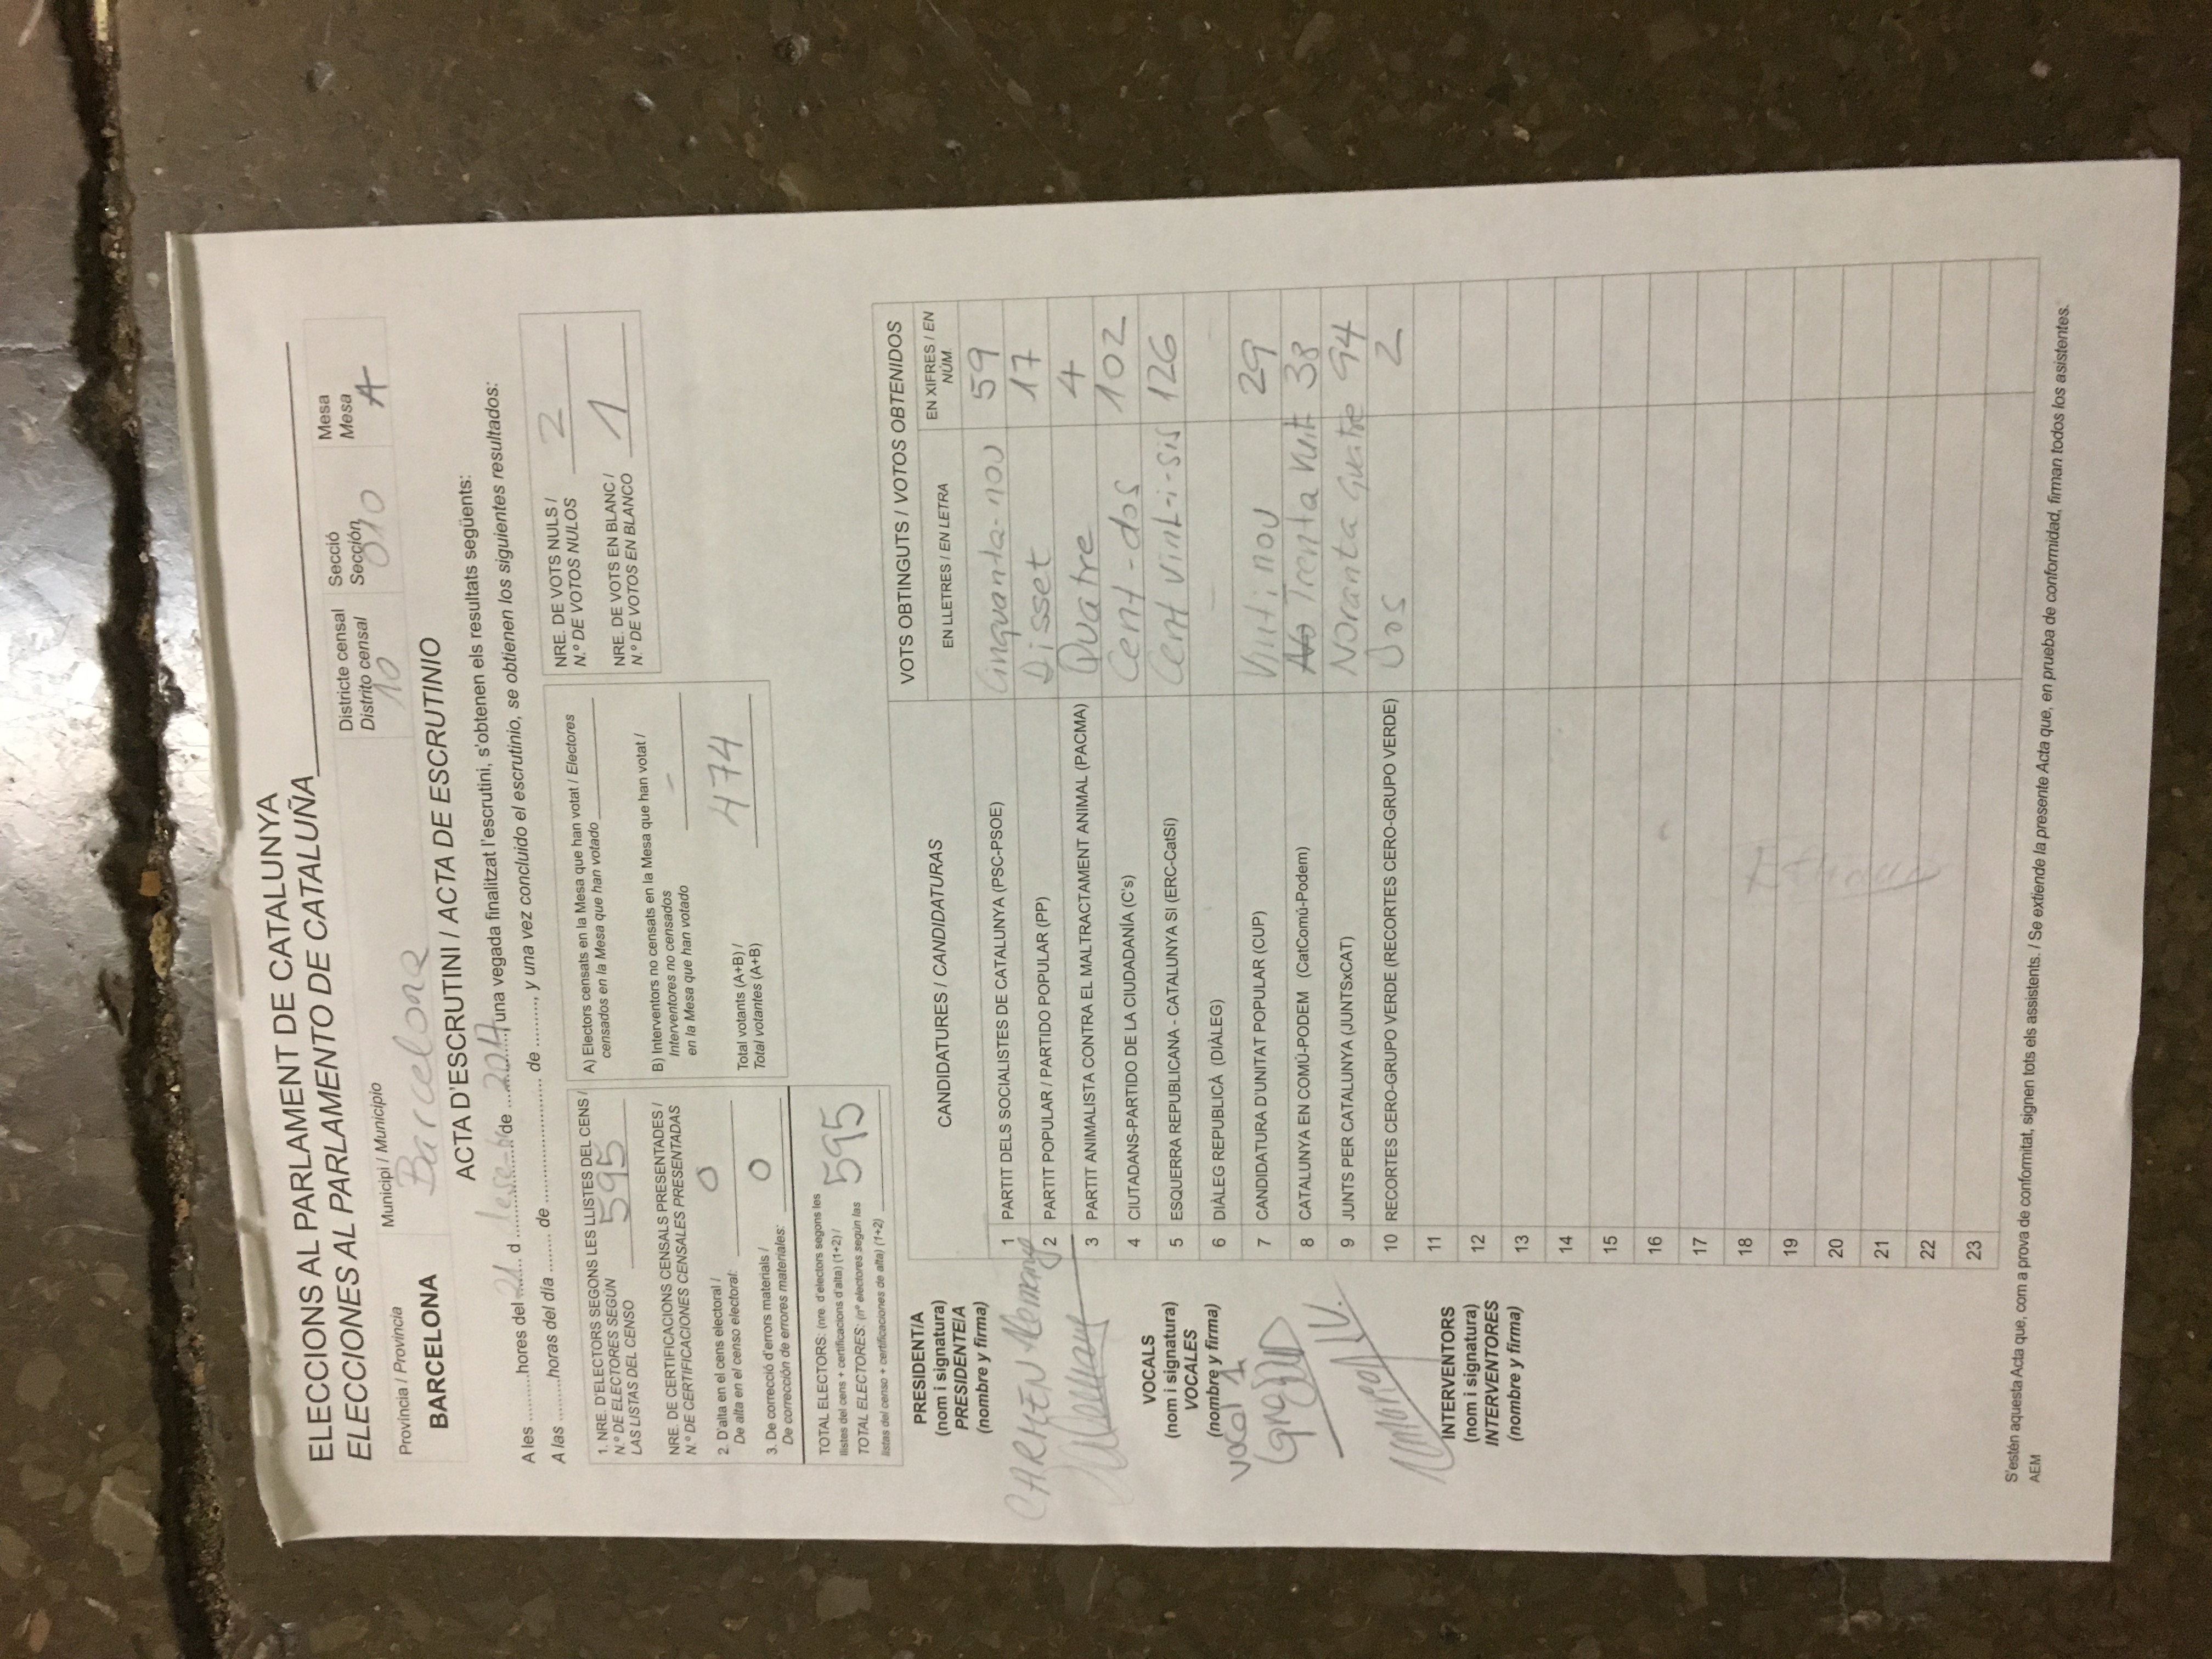 ELECCIONS AL PARLAMENT DE CATALUNYA
ELECCIONES AL PARLAMENTO DE CATALUÑA
Província / Provincia
BARCELONA
Municipi / Municipio
Barcelona
Districte censal
Distrito censal
10
Secció
Sección
010
Mesa
Mesa
A
ACTA D'ESCRUTINI / ACTA DE ESCRUTINIO
A les ..........hores del 21 d desembre de 2017, una vegada finalitzat l'escrutini, s'obtenen els resultats següents:
A las ..........horas del día ........ de ........................... de ........., y una vez concluido el escrutinio, se obtienen los siguientes resultados:
1. NRE. D'ELECTORS SEGONS LES LLISTES DEL CENS /
N.º DE ELECTORES SEGÚN
LAS LISTAS DEL CENSO 595
NRE. DE CERTIFICACIONS CENSALS PRESENTADES /
N.º DE CERTIFICACIONES CENSALES PRESENTADAS
2. D'alta en el cens electoral /
De alta en el censo electoral: 0
3. De correcció d'errors materials /
De corrección de errores materiales: 0
TOTAL ELECTORS: (nre. d'electors segons les
llistes del cens + certificacions d'alta) (1+2) /
TOTAL ELECTORES: (nº electores según las
listas del censo + certificaciones de alta) (1+2) 595
A) Electors censats en la Mesa que han votat / Electores
censados en la Mesa que han votado
B) Interventors no censats en la Mesa que han votat /
Interventores no censados
en la Mesa que han votado -
Total votants (A+B) /
Total votantes (A+B) 474
NRE. DE VOTS NULS /
N.º DE VOTOS NULOS 2
NRE. DE VOTS EN BLANC /
N.º DE VOTOS EN BLANCO 1
PRESIDENT/A
(nom i signatura)
PRESIDENTE/A
(nombre y firma)
CARMEN Alemany
VOCALS
(nom i signatura)
VOCALES
(nombre y firma)
Vocal 1
INTERVENTORS
(nom i signatura)
INTERVENTORES
(nombre y firma)
CANDIDATURES / CANDIDATURAS
VOTS OBTINGUTS / VOTOS OBTENIDOS
EN LLETRES / EN LETRA
EN XIFRES / EN NÚM.
1 PARTIT DELS SOCIALISTES DE CATALUNYA (PSC-PSOE) Cinquanta-nou 59
2 PARTIT POPULAR / PARTIDO POPULAR (PP) Disset 17
3 PARTIT ANIMALISTA CONTRA EL MALTRACTAMENT ANIMAL (PACMA) Quatre 4
4 CIUTADANS-PARTIDO DE LA CIUDADANÍA (C's) Cent-dos 102
5 ESQUERRA REPUBLICANA - CATALUNYA SI (ERC-CatSí) Cent vint-i-sis 126
6 DIÀLEG REPUBLICÀ (DIÀLEG) -
7 CANDIDATURA D'UNITAT POPULAR (CUP) Vint i nou 29
8 CATALUNYA EN COMÚ-PODEM (CatComú-Podem) No Trenta Vuit 38
9 JUNTS PER CATALUNYA (JUNTSxCAT) Noranta quatre 94
10 RECORTES CERO-GRUPO VERDE (RECORTES CERO-GRUPO VERDE) Dos 2
11
12
13
14
15
16
17
18
19
20
21
22
23
S'estén aquesta Acta que, com a prova de conformitat, signen tots els assistents. / Se extiende la presente Acta que, en prueba de conformidad, firman todos los asistentes.
AEM